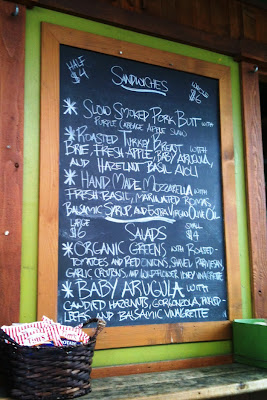 HALF
$4
SANDWICHES
WHOLE
$6
* SLOW SMOKED PORK BUTT WITH
PURPLE CABBAGE APPLE SLAW
* ROASTED TURKEY BREAST WITH
BRIE, FRESH APPLE, BABY ARUGULA,
AND HAZELNUT BASIL AIOLI
* HAND MADE MOZZARELLA WITH
FRESH BASIL, MARINATED ROMAS,
BALSAMIC SYRUP AND EXTRA VIRGIN OLIVE OIL
LARGE
$6
SALADS
SMALL
$4
* ORGANIC GREENS WITH ROASTED
TOMATOES AND RED ONIONS, SHAVED PARMESAN,
GARLIC CROUTONS, AND WILDFLOWER HONEY VINAIGRETTE
* BABY ARUGULA WITH
CANDIED HAZELNUTS, GORGONZOLA, PICKED-
AND BALSAMIC VINAIGRETTE